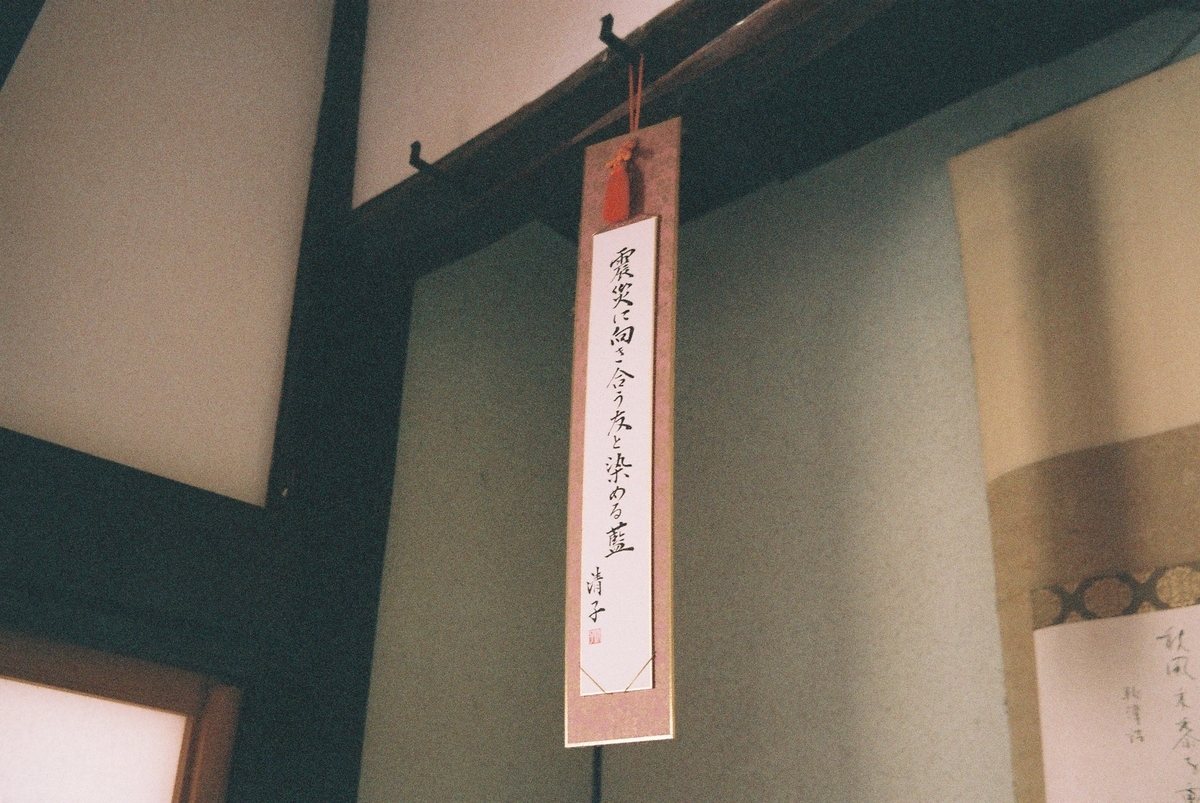 震災に向き合う友と染める藍
清子
秋風